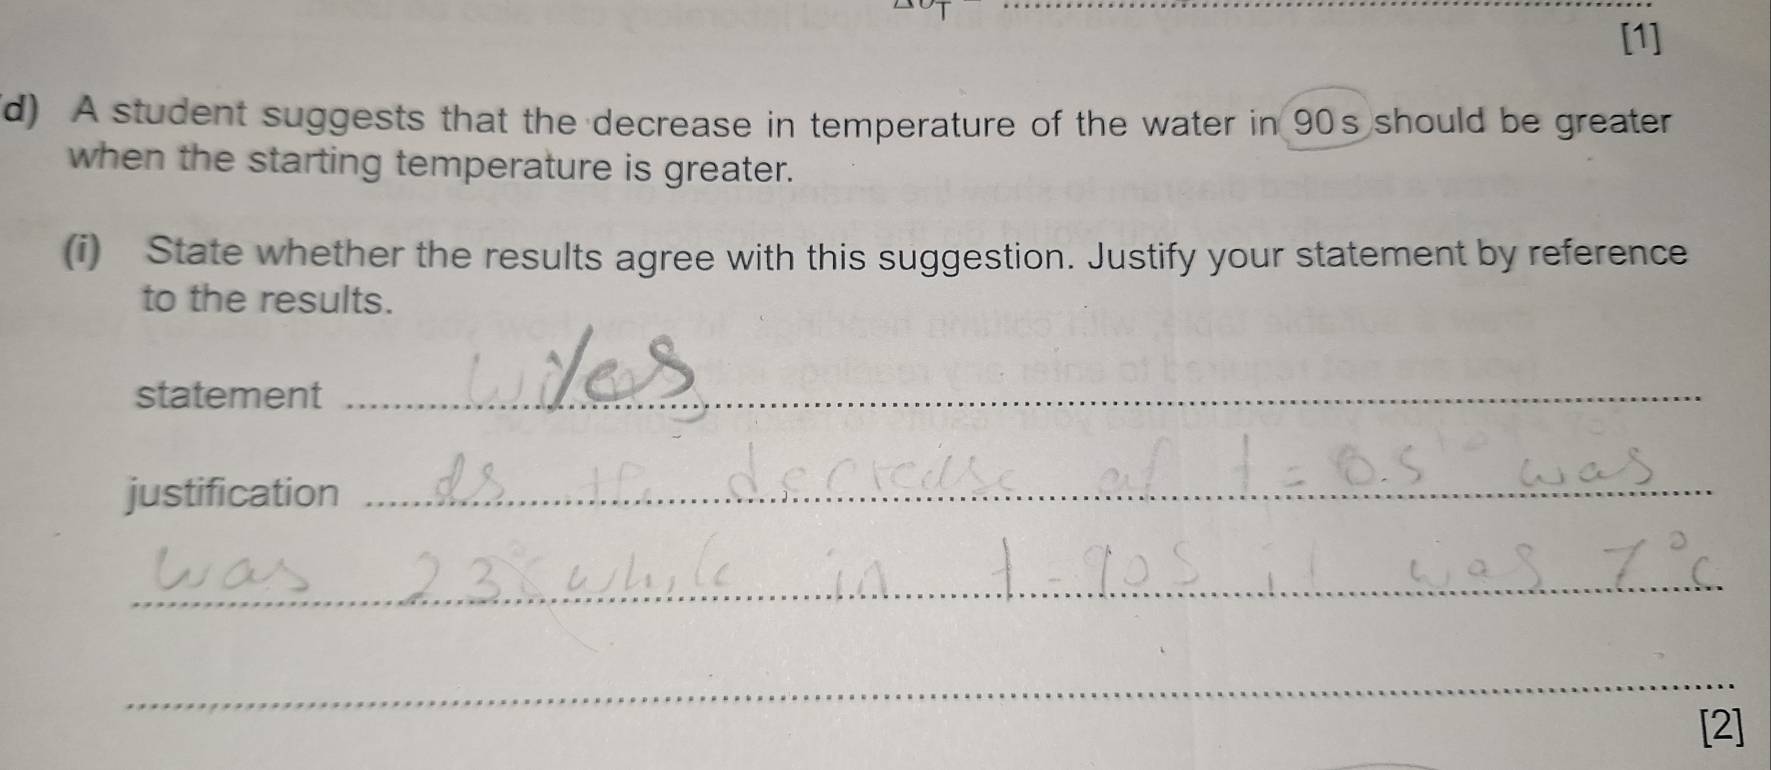 [1]
d) A student suggests that the decrease in temperature of the water in 90s should be greater
when the starting temperature is greater.
(i) State whether the results agree with this suggestion. Justify your statement by reference
to the results.
statement yes
justification as the decrease at t = 0.5 was
was 23°c while in t=90s it was 7°c
[2]